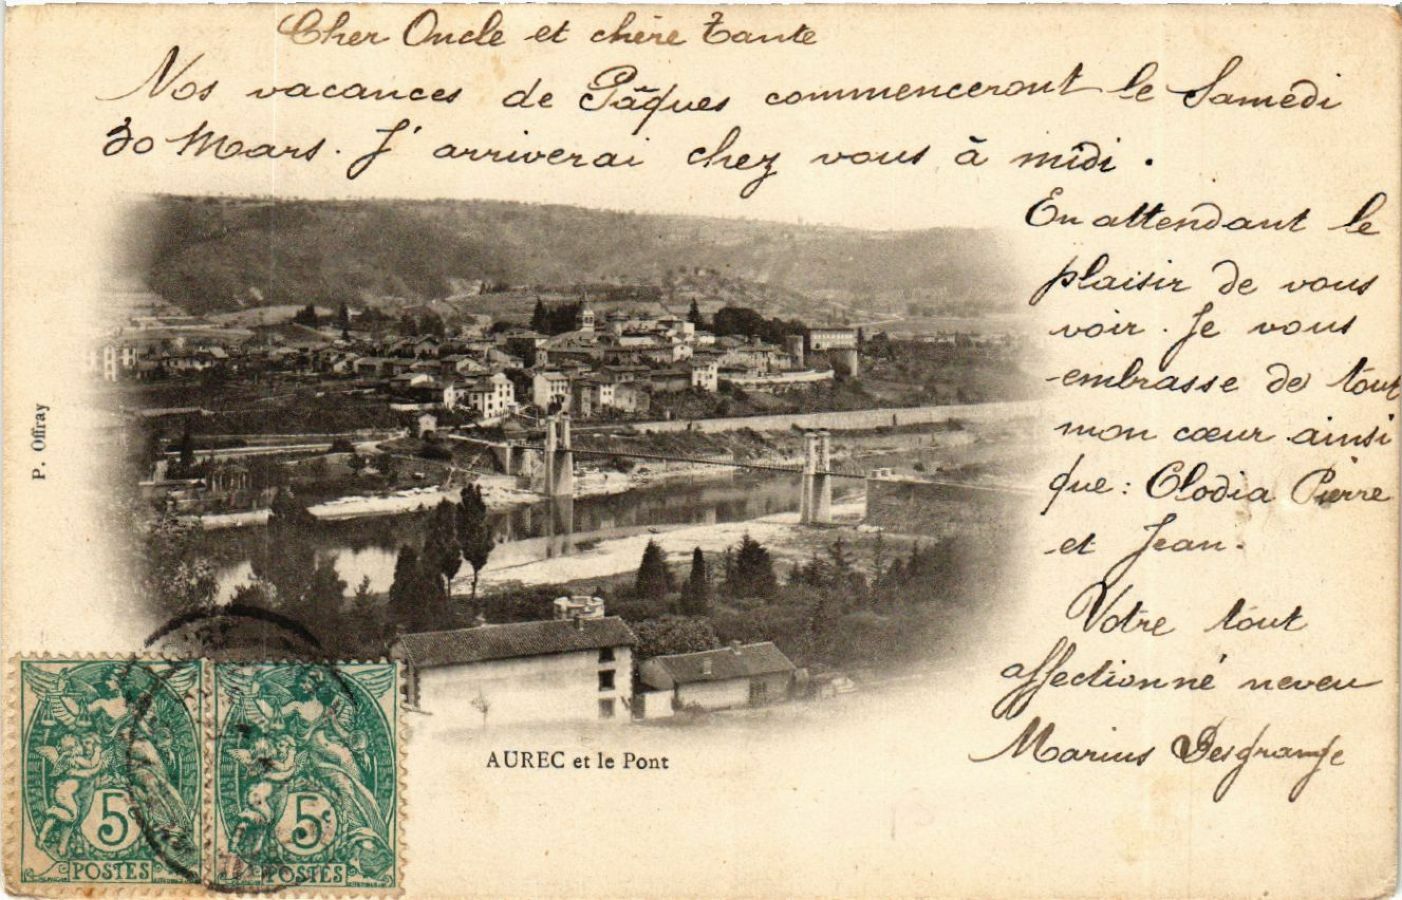 Cher Oncle et chère Tante
Nos vacances de Pâques commenceront le Samedi
30 Mars. J'arriverai chez vous à midi.
En attendant le
plaisir de vous
voir. Je vous
embrasse de tout
mon cœur ainsi
que: Clodia Pierre
et Jean.
Votre tout
affectionné neveu
Marius Desgrange
P. Offray
AUREC et le Pont
5
POSTES
5c
POSTES